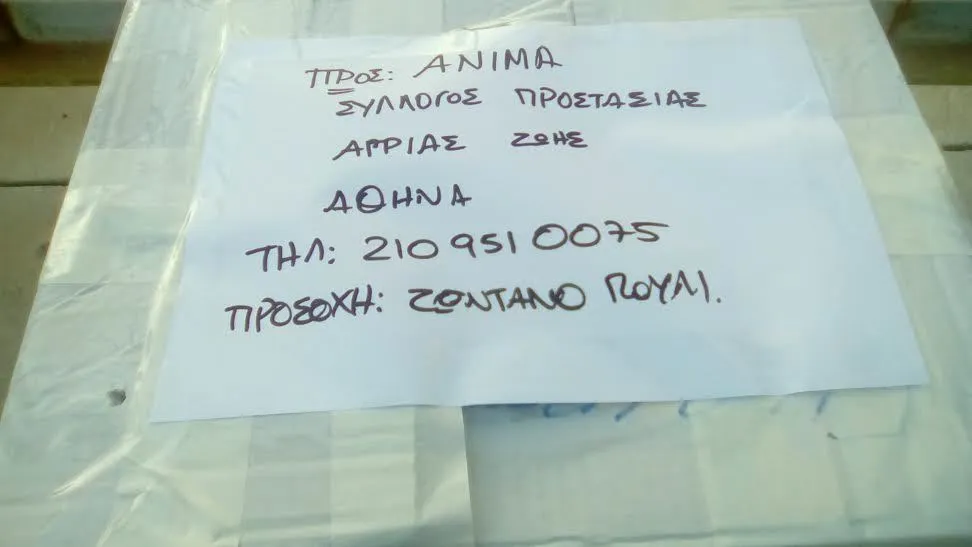 ΠΡΟΣ: ΑΝΙΜΑ
ΣΥΛΛΟΓΟΣ ΠΡΟΣΤΑΣΙΑΣ
ΑΓΡΙΑΣ ΖΩΗΣ
ΑΘΗΝΑ
ΤΗΛ: 210 951 0075
ΠΡΟΣΟΧΗ: ΖΩΝΤΑΝΟ ΠΟΥΛΙ.